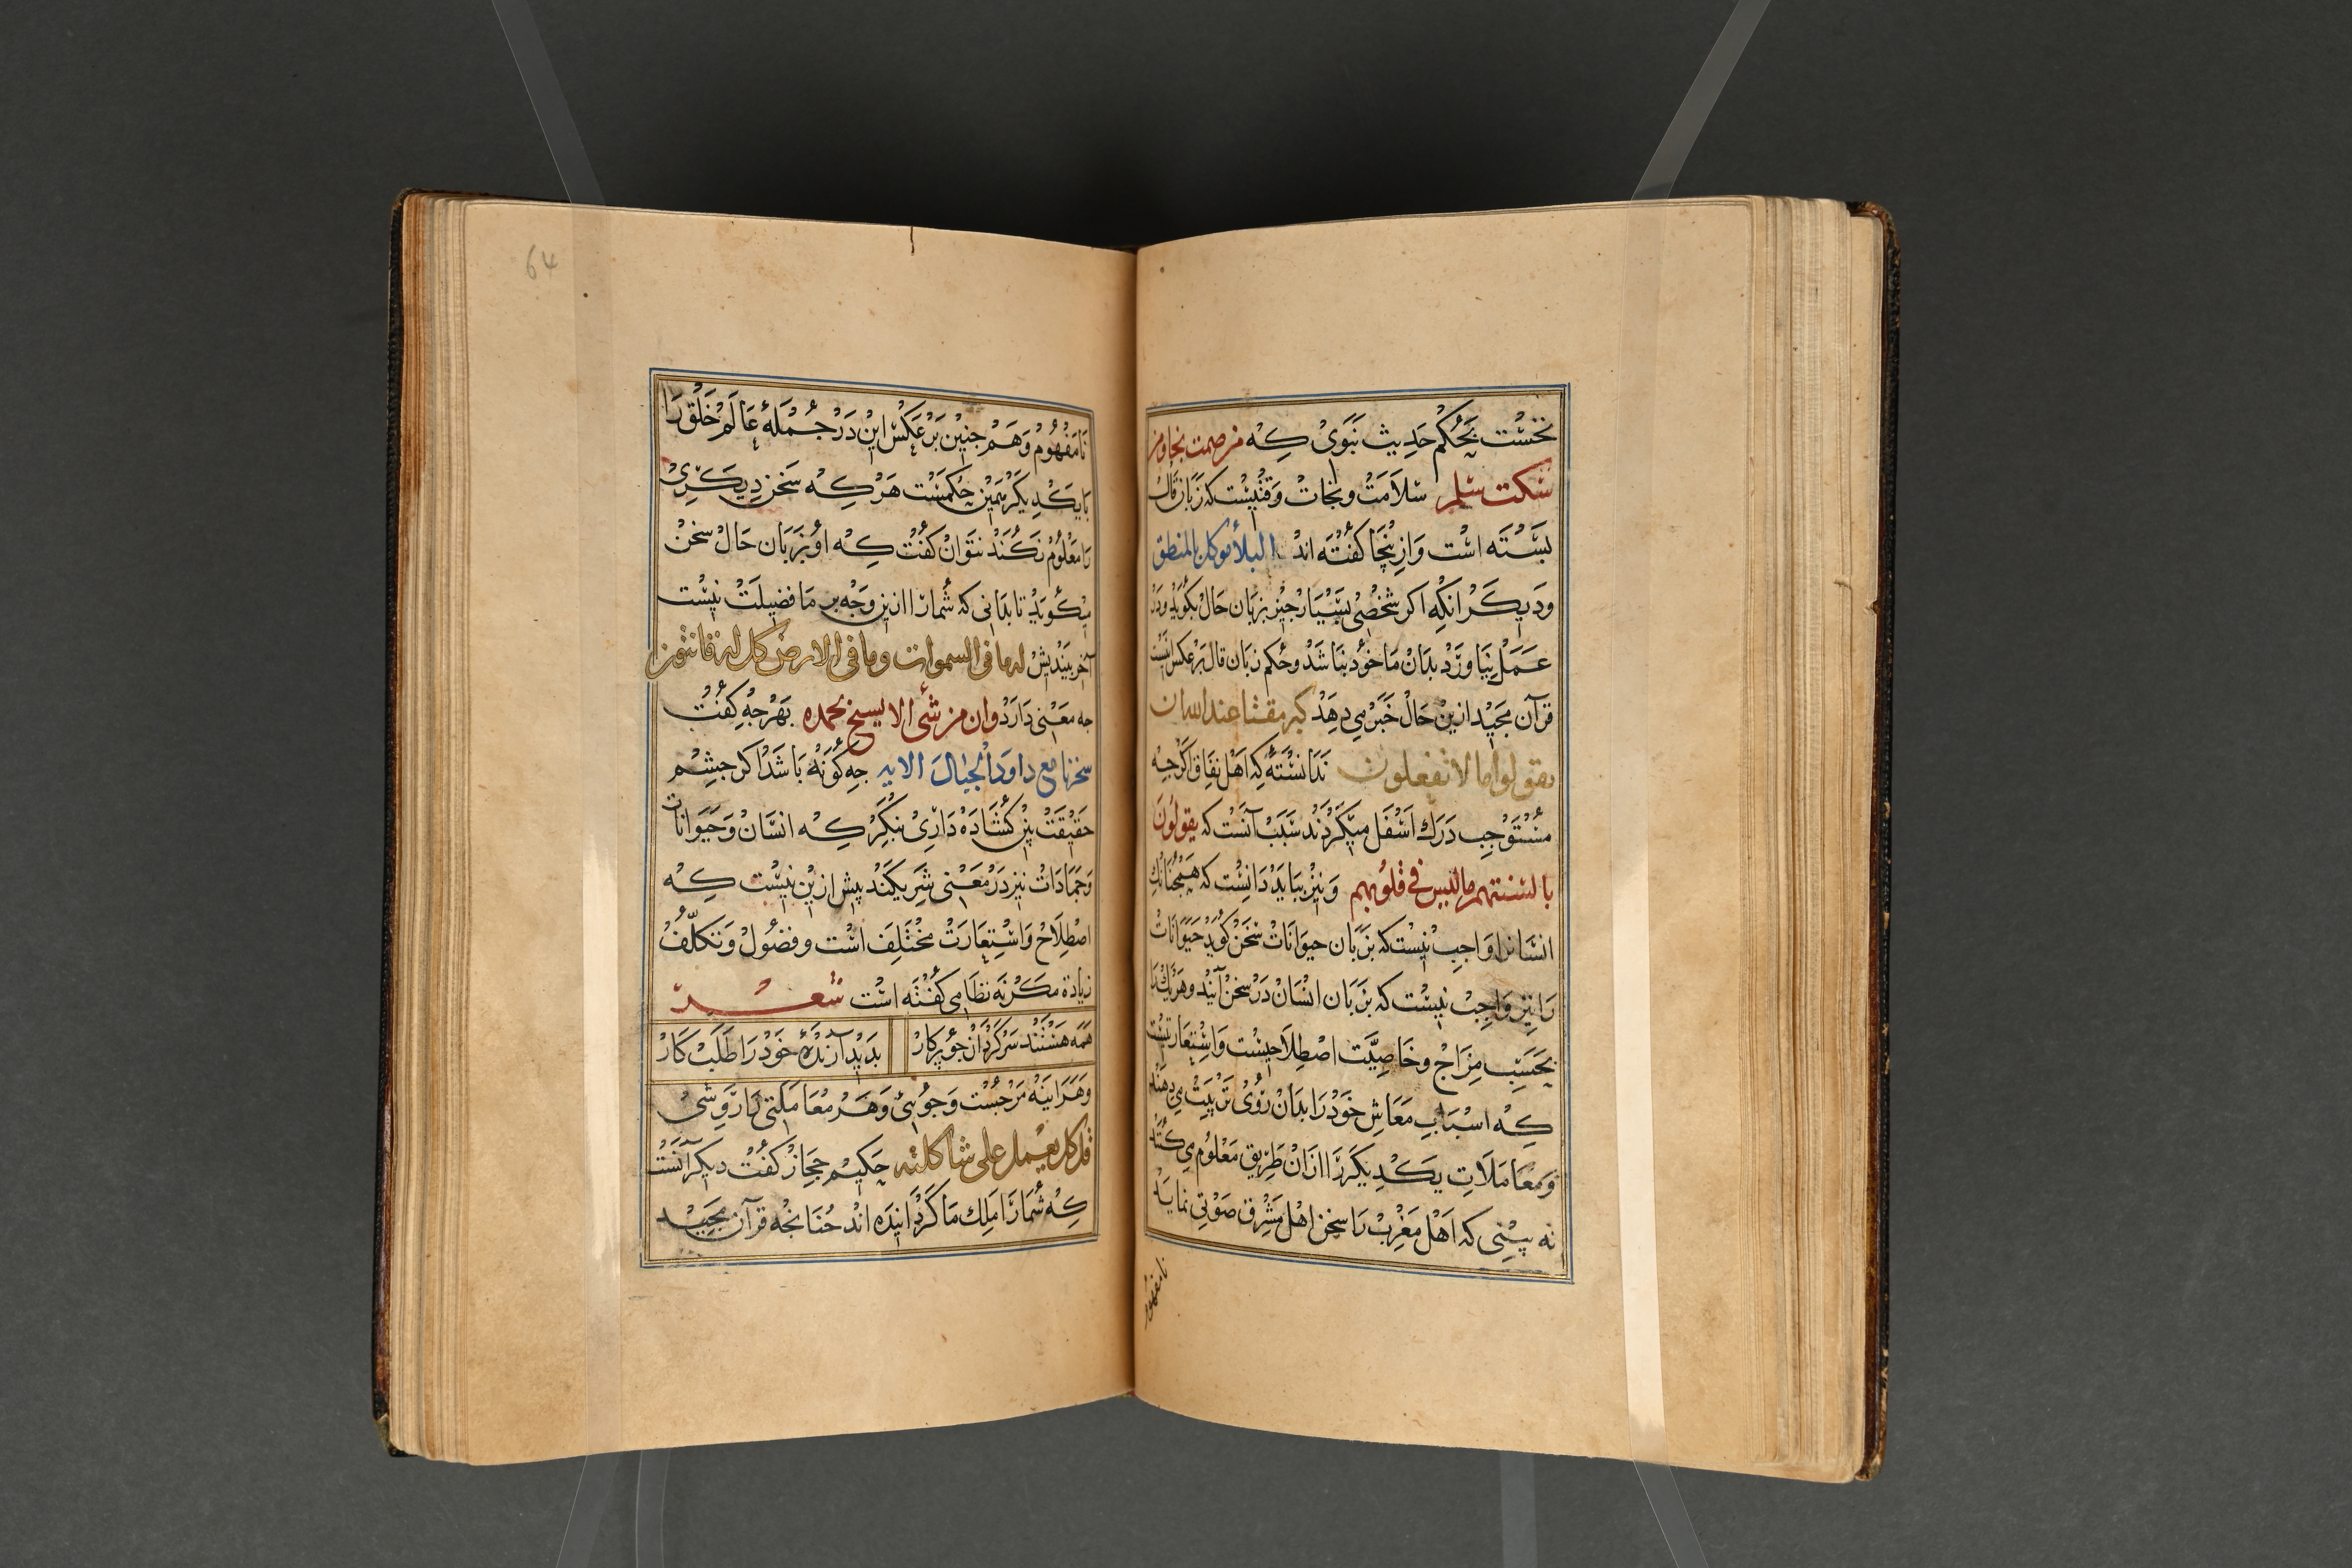 نخست بحکم حدیث نبوی که من صمت نجا ومن
سکت سلم سلامت ونجات وقتیست که زبان قال
بسته است وازینجا کفته اند البلا موکل بالمنطق
ودیکر انکه اکر شخصی بسیار چیز بزبان حال بکوید ودر
عمل نیاورد بدان ماخود نباشد وحکم زبان قال برعکس اینست
قرآن مجید ازین حال خبر می دهد کبر مقتا عند الله ان
تقولوا ما لا تفعلون ندانسته که اهل نفاق اکرجه
مستوجب درک اسفل میکردند سبب آنست که یقولون
بالسنتهم ما لیس فی قلوبهم ونیز بباید دانست که همچنانک
انسانرا واجب نیست که بزبان حیوانات سخن کوید حیوانات
را نیز واجب نیست که بزبان انسان در سخن آیند وهریک را
بحسب مزاج وخاصیت اصطلاحیست واستعارتیست
که اسباب معاش خود را بدان روی ترتیب می دهند
ومعاملات یکدیکر را ازان طریق معلوم می کنند
نه بینی که اهل مغرب را سخن اهل مشرق صوتی نماید
نامفهوم
64
نامفهوم وهم جنین برعکس این در جمله عالم خلق را
بایکدیکر همین حکمست هرکه سخن دیکری
را معلوم نکند نتوان کفت که او بزبان حال سخن
میکوید تا بدانی که شمارا ازین وجه بر ما فضیلت نیست
آخر بیندیش له ما فی السموات وما فی الارض کل له قانتون
جه معنی دارد وان من شئ الا یسبح بحمده بهر جه کفت
سخرنا مع داود الجبال الایه جه کونه باشد اکر جشم
حقیقت بین کشاده داری بنکر که انسان وحیوانات
وجمادات نیز در معنی شریکند بیش ازین نیست که
اصطلاح واستعارت مختلف است وفضول وتکلف
زیادة مکر نه نظامی کفته است شعر
همه هستند سرکردان جو پرکار
بدید آرنده خود را طلب کار
وهر اینه مر جست وجوئی وهر معاملتی را روشی
قل کل یعمل علی شاکلته حکیم حجاز کفت دیکر آنست
که شمارا ملک ما کردانیده اند جنانجه قرآن مجید